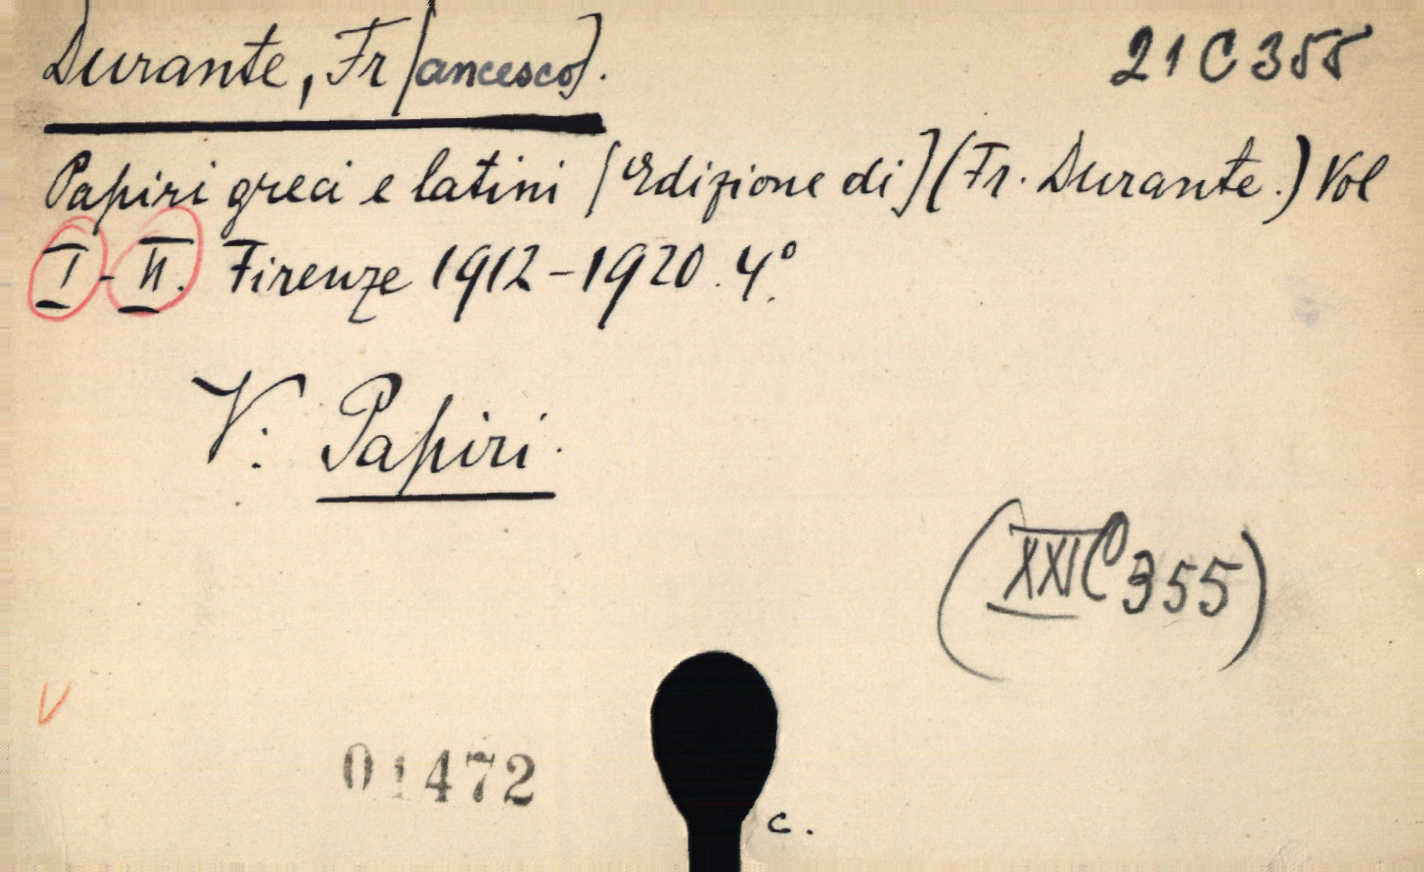 Durante, Fr[ancesco]. 21 C 355
Papiri greci e latini [Edizione di] (Fr. Durante.) Vol
I-II. Firenze 1912-1920. 4°.
V: Papiri.
(XXI C 355)
V
01472
c.